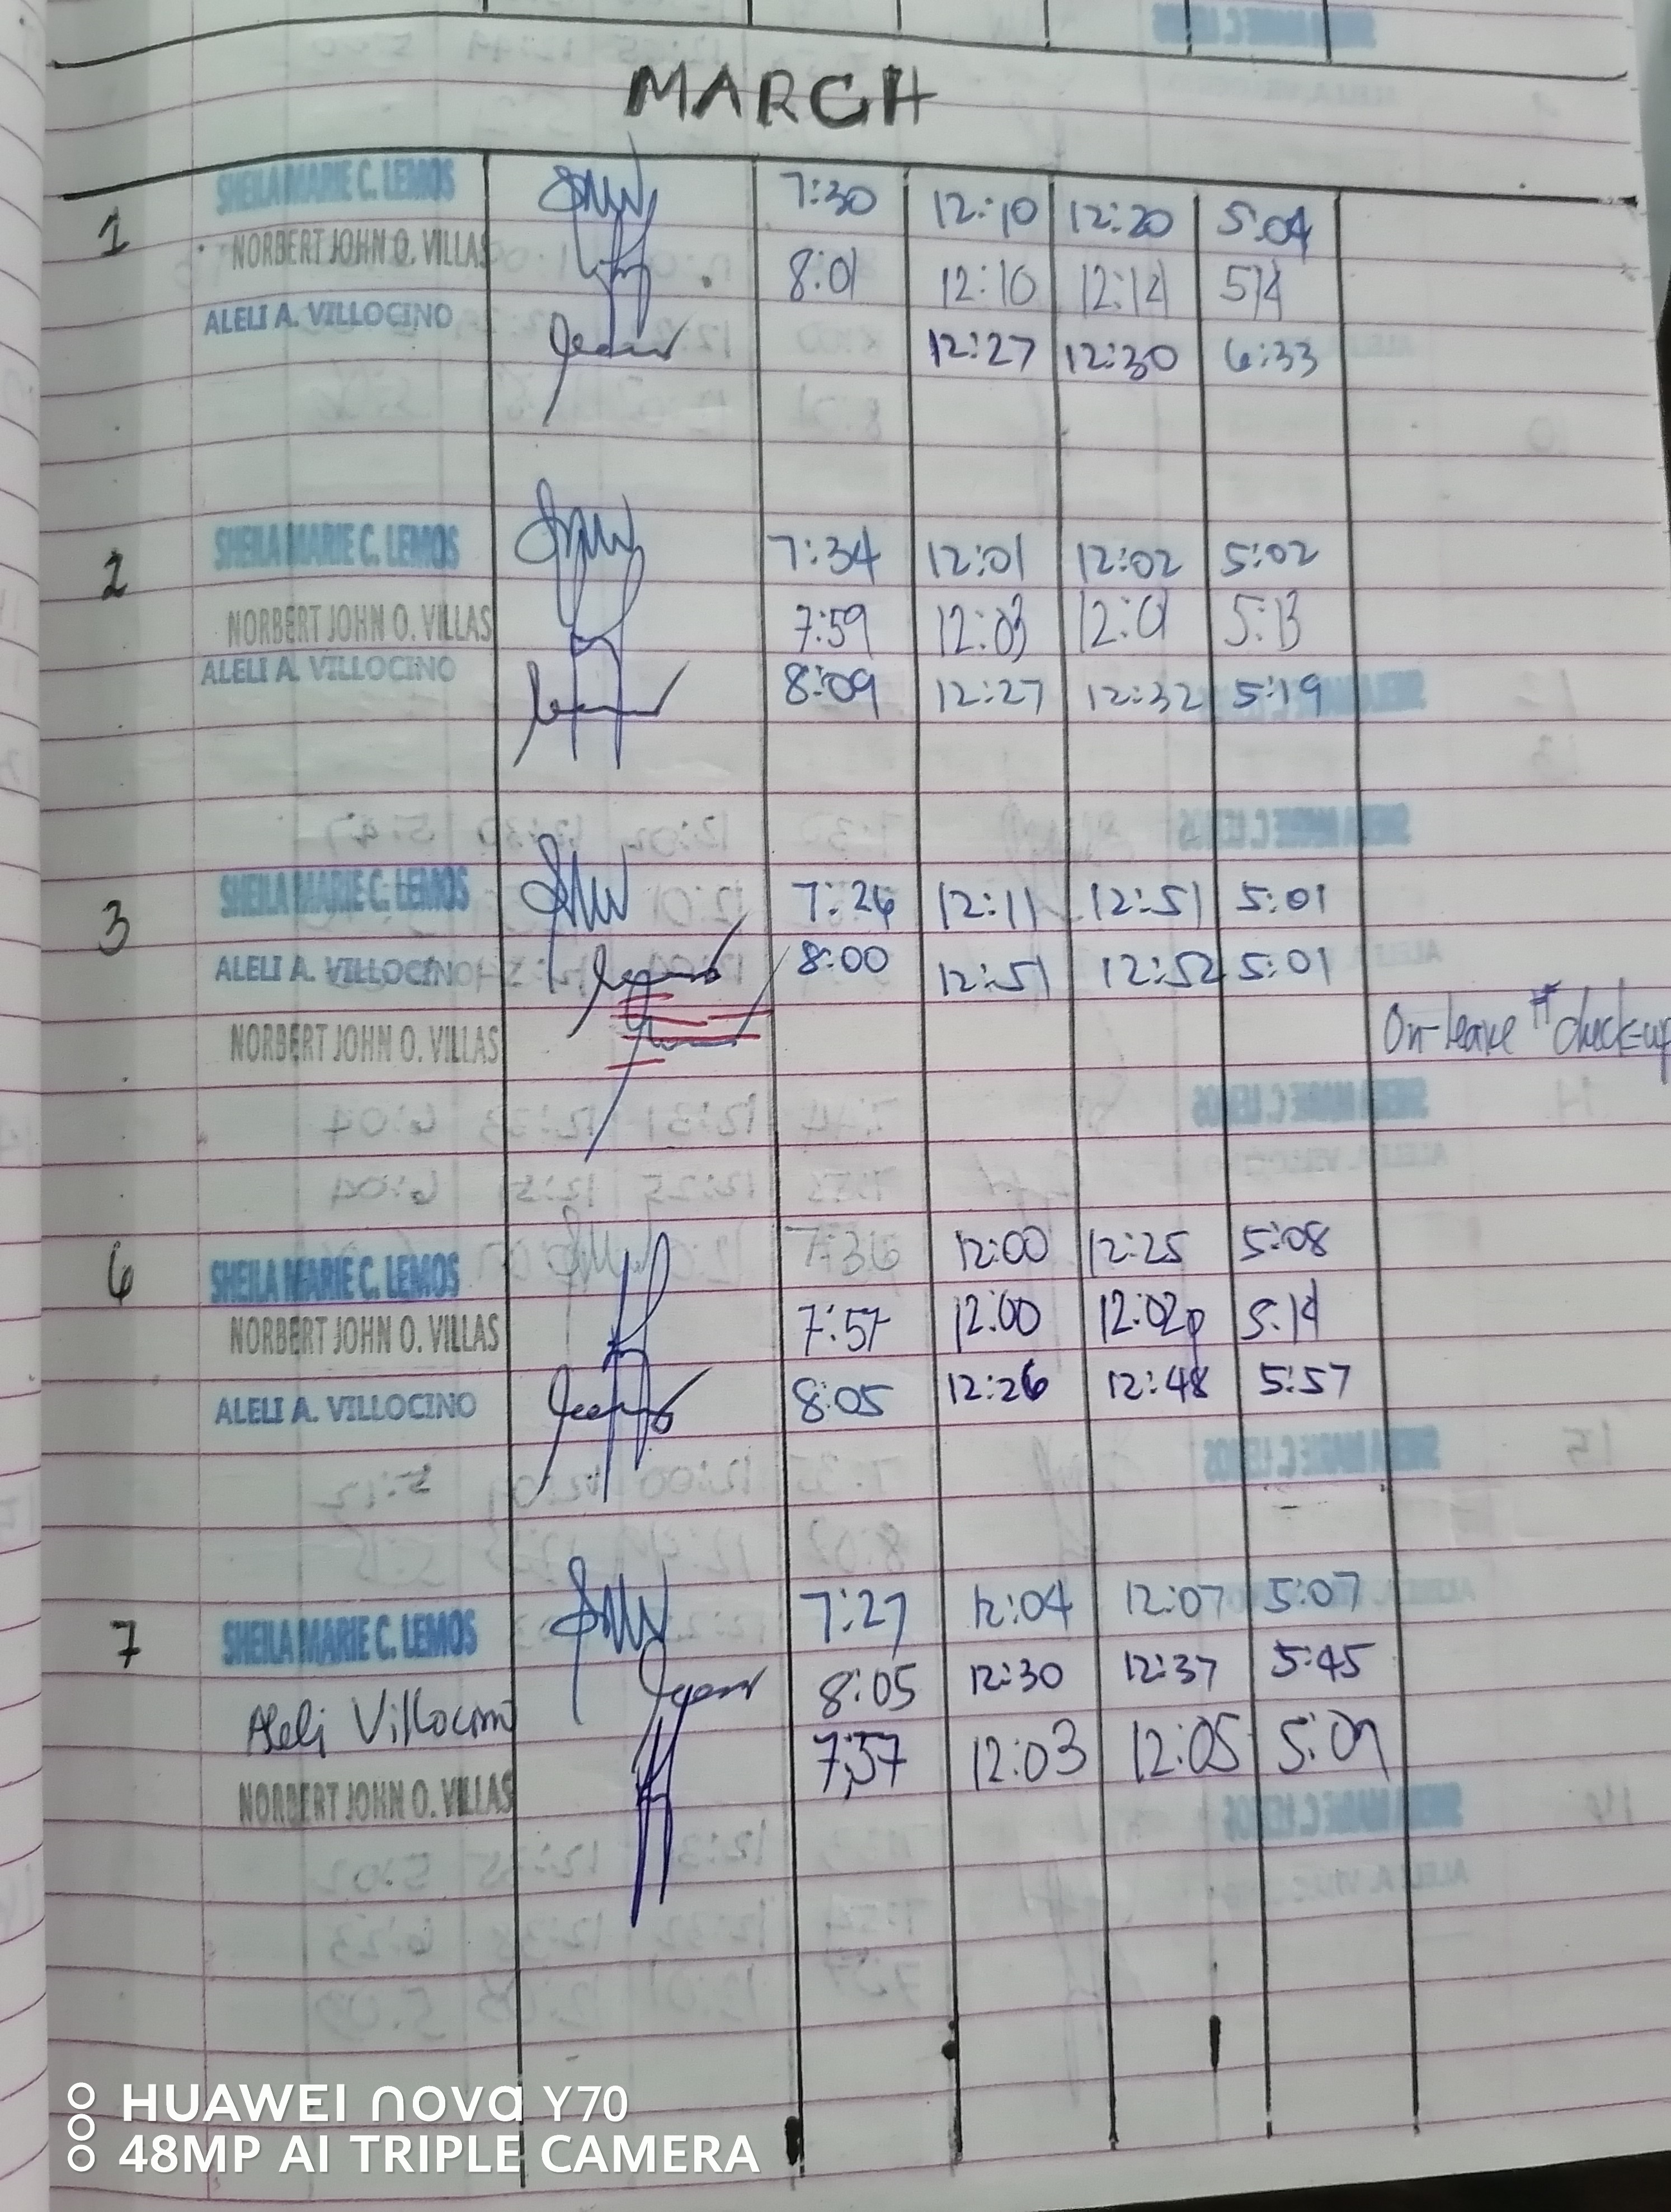 MARCH
1 SHEILA MARIE C. LEMOS 7:30 12:10 12:20 5:04
NORBERT JOHN O. VILLAS 8:01 12:10 12:14 5:14
ALELI A. VILLOCINO 12:27 12:30 6:33
2 SHEILA MARIE C. LEMOS 7:34 12:01 12:02 5:02
NORBERT JOHN O. VILLAS 7:59 12:03 5:13
ALELI A. VILLOCINO 8:09 12:27 12:32 5:19
3 SHEILA MARIE C. LEMOS 7:26 12:11 12:51 5:01
ALELI A. VILLOCINO 8:00 12:51 12:52 5:01
NORBERT JOHN O. VILLAS On-leave # check-up
6 SHEILA MARIE C. LEMOS 7:36 12:00 12:25 5:08
NORBERT JOHN O. VILLAS 7:57 12:00 12:02p 5:14
ALELI A. VILLOCINO 8:05 12:26 12:48 5:57
7 SHEILA MARIE C. LEMOS 7:27 12:04 12:07 5:07
Aleli Villocino 8:05 12:30 12:37 5:45
NORBERT JOHN O. VILLAS 7:57 12:03 12:05 5:09
HUAWEI nova Y70
48MP AI TRIPLE CAMERA